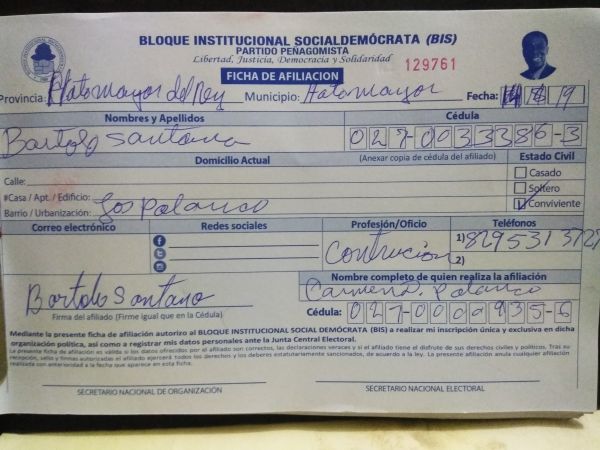 BLOQUE INSTITUCIONAL SOCIALDEMÓCRATA (BIS)
PARTIDO PEÑAGOMISTA
Libertad, Justicia, Democracia y Solidaridad
129761
FICHA DE AFILIACION
Provincia: Hato mayor del Rey Municipio: Hato mayor Fecha: 19
Nombres y Apellidos Cédula
Bartolo Santana 027-0033386-3
Domicilio Actual (Anexar copia de cédula del afiliado) Estado Civil
Calle: Casado
#Casa / Apt. / Edificio: Soltero
Barrio / Urbanización: Los Polanco Conviviente
Correo electrónico Redes sociales Profesión/Oficio Teléfonos
Contrucion 1) 829531372
2)
Nombre completo de quien realiza la afiliación
Bartolo Santano Carmen D. Polanco
Firma del afiliado (Firme igual que en la Cédula) Cédula: 027-0000935-6
Mediante la presente ficha de afiliación autorizo al BLOQUE INSTITUCIONAL SOCIAL DEMÓCRATA (BIS) a realizar mi inscripción única y exclusiva en dicha
organización política, así como a registrar mis datos personales ante la Junta Central Electoral.
La presente ficha de afiliación es válida si los datos ofrecidos por el afiliado son correctos, las declaraciones veraces y si el afiliado tiene el disfrute de sus derechos civiles y políticos. Tras su
recepción, sello y firmas autorizadas el afiliado ejercerá todos los derechos y los deberes estatutariamente sancionados, de acuerdo a la ley. La presente afiliación anula cualquier afiliación
realizada con anterioridad a la fecha que aparece en esta ficha.
SECRETARIO NACIONAL DE ORGANIZACIÓN SECRETARIO NACIONAL ELECTORAL